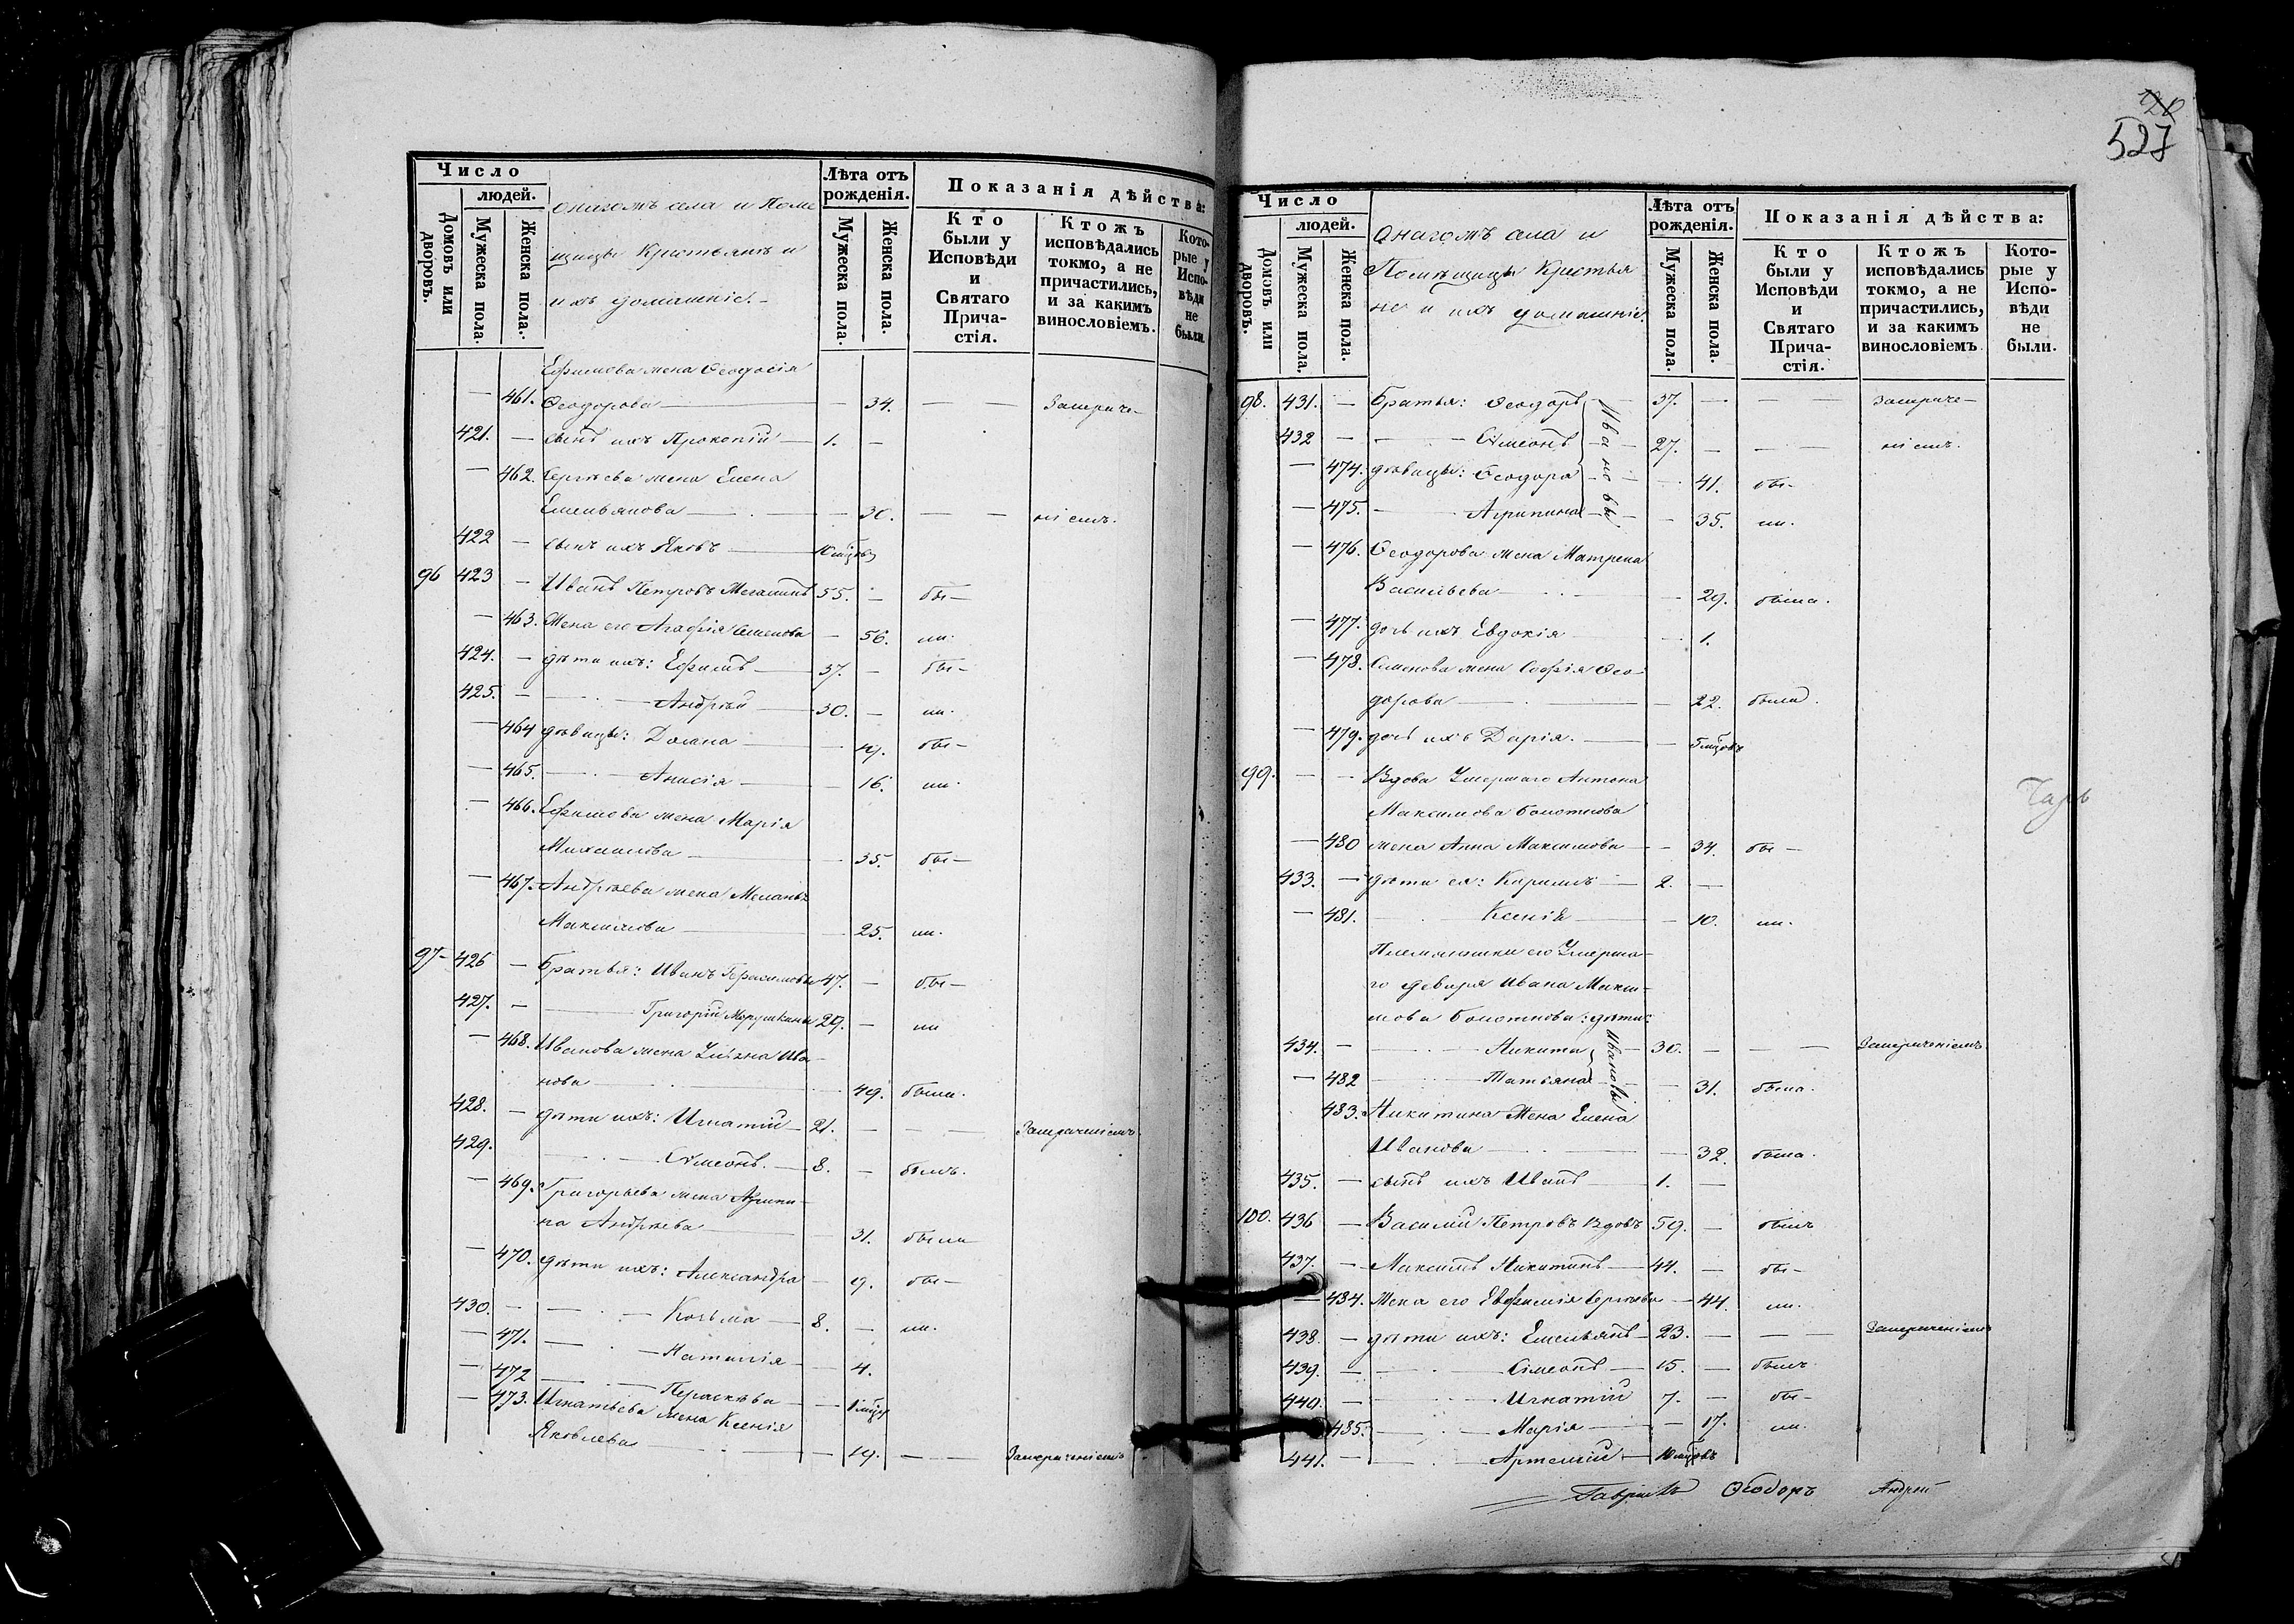 Число
людей.
Домовъ или дворовъ.
Мужеска пола.
Женска пола.
онагожъ села и Поме
щицы Крестьянъ и
ихъ домашніе.
Лѣта отъ рожденія.
Мужеска пола.
Женска пола.
Показанія дѣйства:
Кто были у Исповѣди и Святаго Прича-стія.
Ктожъ исповѣдались токмо, а не причастились, и за какимъ винословіемъ.
Кото-рые у Испо-вѣди не были.
Ефимова жена Ѳеодосія
— 461. Ѳеодорова — 34. — — Запрече-
421. — сынъ ихъ Прокопій 1. —
— 462. Сергѣева жена Елена
Емельянова — 30. — — ніемъ.
422 — сынъ ихъ Яковъ 10 мцовъ
96 423 — Иванъ Петровъ 55. — бы-
— 463. Жена его Агафія Семенова — 56. ли.
424. — дѣти ихъ: Ефимъ 37. — бы-
425. — Андрей 30. — ли.
— 464 дѣвицы: Домна — 19. бы-
— 465. Анисія — 16. ли.
— 466. Ефимова жена Марія
Михаилова — 35. бы-
— 467. Андреева жена Меланья
Максимова — 25. ли.
97 426 — братья: Иванъ Герасимовы 47. — бы-
427. — Григорій Морушкины 29. — ли
— 468. Иванова жена Ульяна Ива-
нова — 49. была.
428. — дѣти ихъ: Игнатій 21. — — — Запреченіемъ.
429. Симеонъ. 8. — былъ.
— 469. Григорьева жена Агрипи-
на Андреева — 31. была
— 470. дѣти ихъ: Александра — 9. бы-
430. — Козьма 8. — ли.
— 471. Наталія — 4.
— 472 Пераскева — 1 мцъ
— 473. Игнатьева жена Ксенія
Яковлева — 19. — — Запреченіемъ
527
Число
людей.
Домовъ или дворовъ.
Мужеска пола.
Женска пола.
Онагожъ села и
Помѣщицы Крестья
не и ихъ домашніе.
Лѣта отъ рожденія.
Мужеска пола.
Женска пола.
Показанія дѣйства:
Кто были у Исповѣди и Святаго Прича-стія.
Ктожъ исповѣдались токмо, а не причастились, и за какимъ винословіемъ
Кото-рые у Испо-вѣди не были.
98. 431. — братья: Ѳеодоръ Ивановы 37. — — — запрече-
432 — Симеонъ 27. — — — ніемъ.
— 474. дѣвицы: Ѳеодора — 41. бы-
— 475. — Агрипина — 35. ли.
— 476. Ѳеодорова жена Матрена
Васильева — 29. была.
— 477. дочь ихъ Евдокія — 1.
— 478. Семенова жена Софія Ѳео-
дорова — 22. была.
— 479. дочь ихъ Дарія. — 5 мцовъ
99. — — Вдова Умершаго Антона
Максимова Болотнова
— 480 жена Анна Максимова — 34. бы-
433. — дѣти ея: 2. —
— 481. Ксенія — 10. ли.
Племянники его Умерша-
го деверя Ивана Макси-
мова Болотнова: дѣти:
434. — Никита Ивановы 30. — — — Запреченіемъ.
— 482 Татьяна — 31. была.
483. Никитина Жена Елена
Иванова — 32. была.
435. — сынъ ихъ Иванъ 1. —
100. 436 — Василій Петровъ Вдовъ 59. — былъ
437. — Максимъ Никитинъ 44. — бы-
— 484. Жена его Евфимія Сергѣева — 44. ли.
438. — дѣти ихъ: Емельянъ 23. — — Запреченіемъ
439. — Симеонъ 15. — былъ
440. — Игнатій 7. — бы-
485. — Марія — 17. ли.
441. — Артемій 10 мцовъ
Гавріилъ Ѳеодоръ Андрей